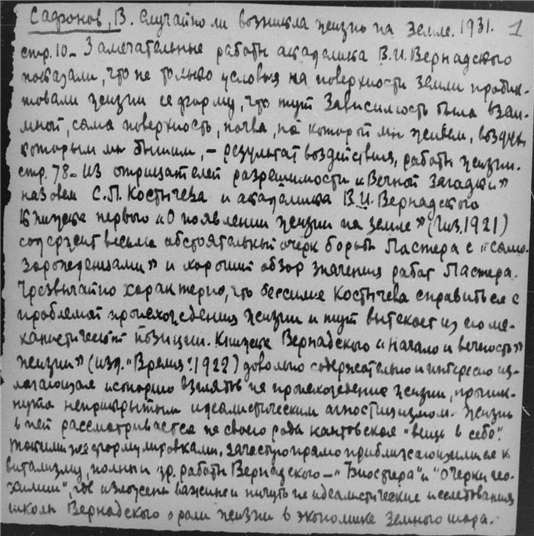 Сафонов, В. Случайно ли возникла жизнь на земле. 1931. 1
стр. 10 – Замечательные работы академика В.И. Вернадского
показали, что не только условия на поверхности земли продик-
товали жизни ее форму, что тут зависимость была взаи-
мной, сама поверхность, почва, на которой мы живем, воздух,
которым мы дышим, – результат воздействия, работы жизни.
стр. 78 – Из отрицателей разрешимости „Вечной загадки"
назовем С.П. Костычева и академика В.И. Вернадского
Книжка первого „О появлении жизни на земле" (Гиз. 1921)
содержит весьма обстоятельный очерк борьбы Пастера с „само-
зарожденцами" и хороший обзор значения работ Пастера.
Чрезвычайно характерно, что бессилие Костычева справиться с
проблемой происхождения жизни и тут вытекает из его ме-
ханистической позиции. Книжка Вернадского „Начало и вечность
жизни" (изд. "Время". 1922) довольно содержательно и интересно из-
лагающая историю взглядов на происхождение жизни, проник-
нута неприкрытым идеалистическим агностицизмом. Жизнь
в ней рассматривается как своего рода кантовская "вещь в себе".
Такими же формулировками, зачастую прямо приближающимися к
витализму, полны и др. работы Вернадского – "Биосфера" и "Очерки гео-
химии", где изложены важные и ничуть не идеалистические исследования
школы Вернадского о роли жизни в экономике земного шара. –